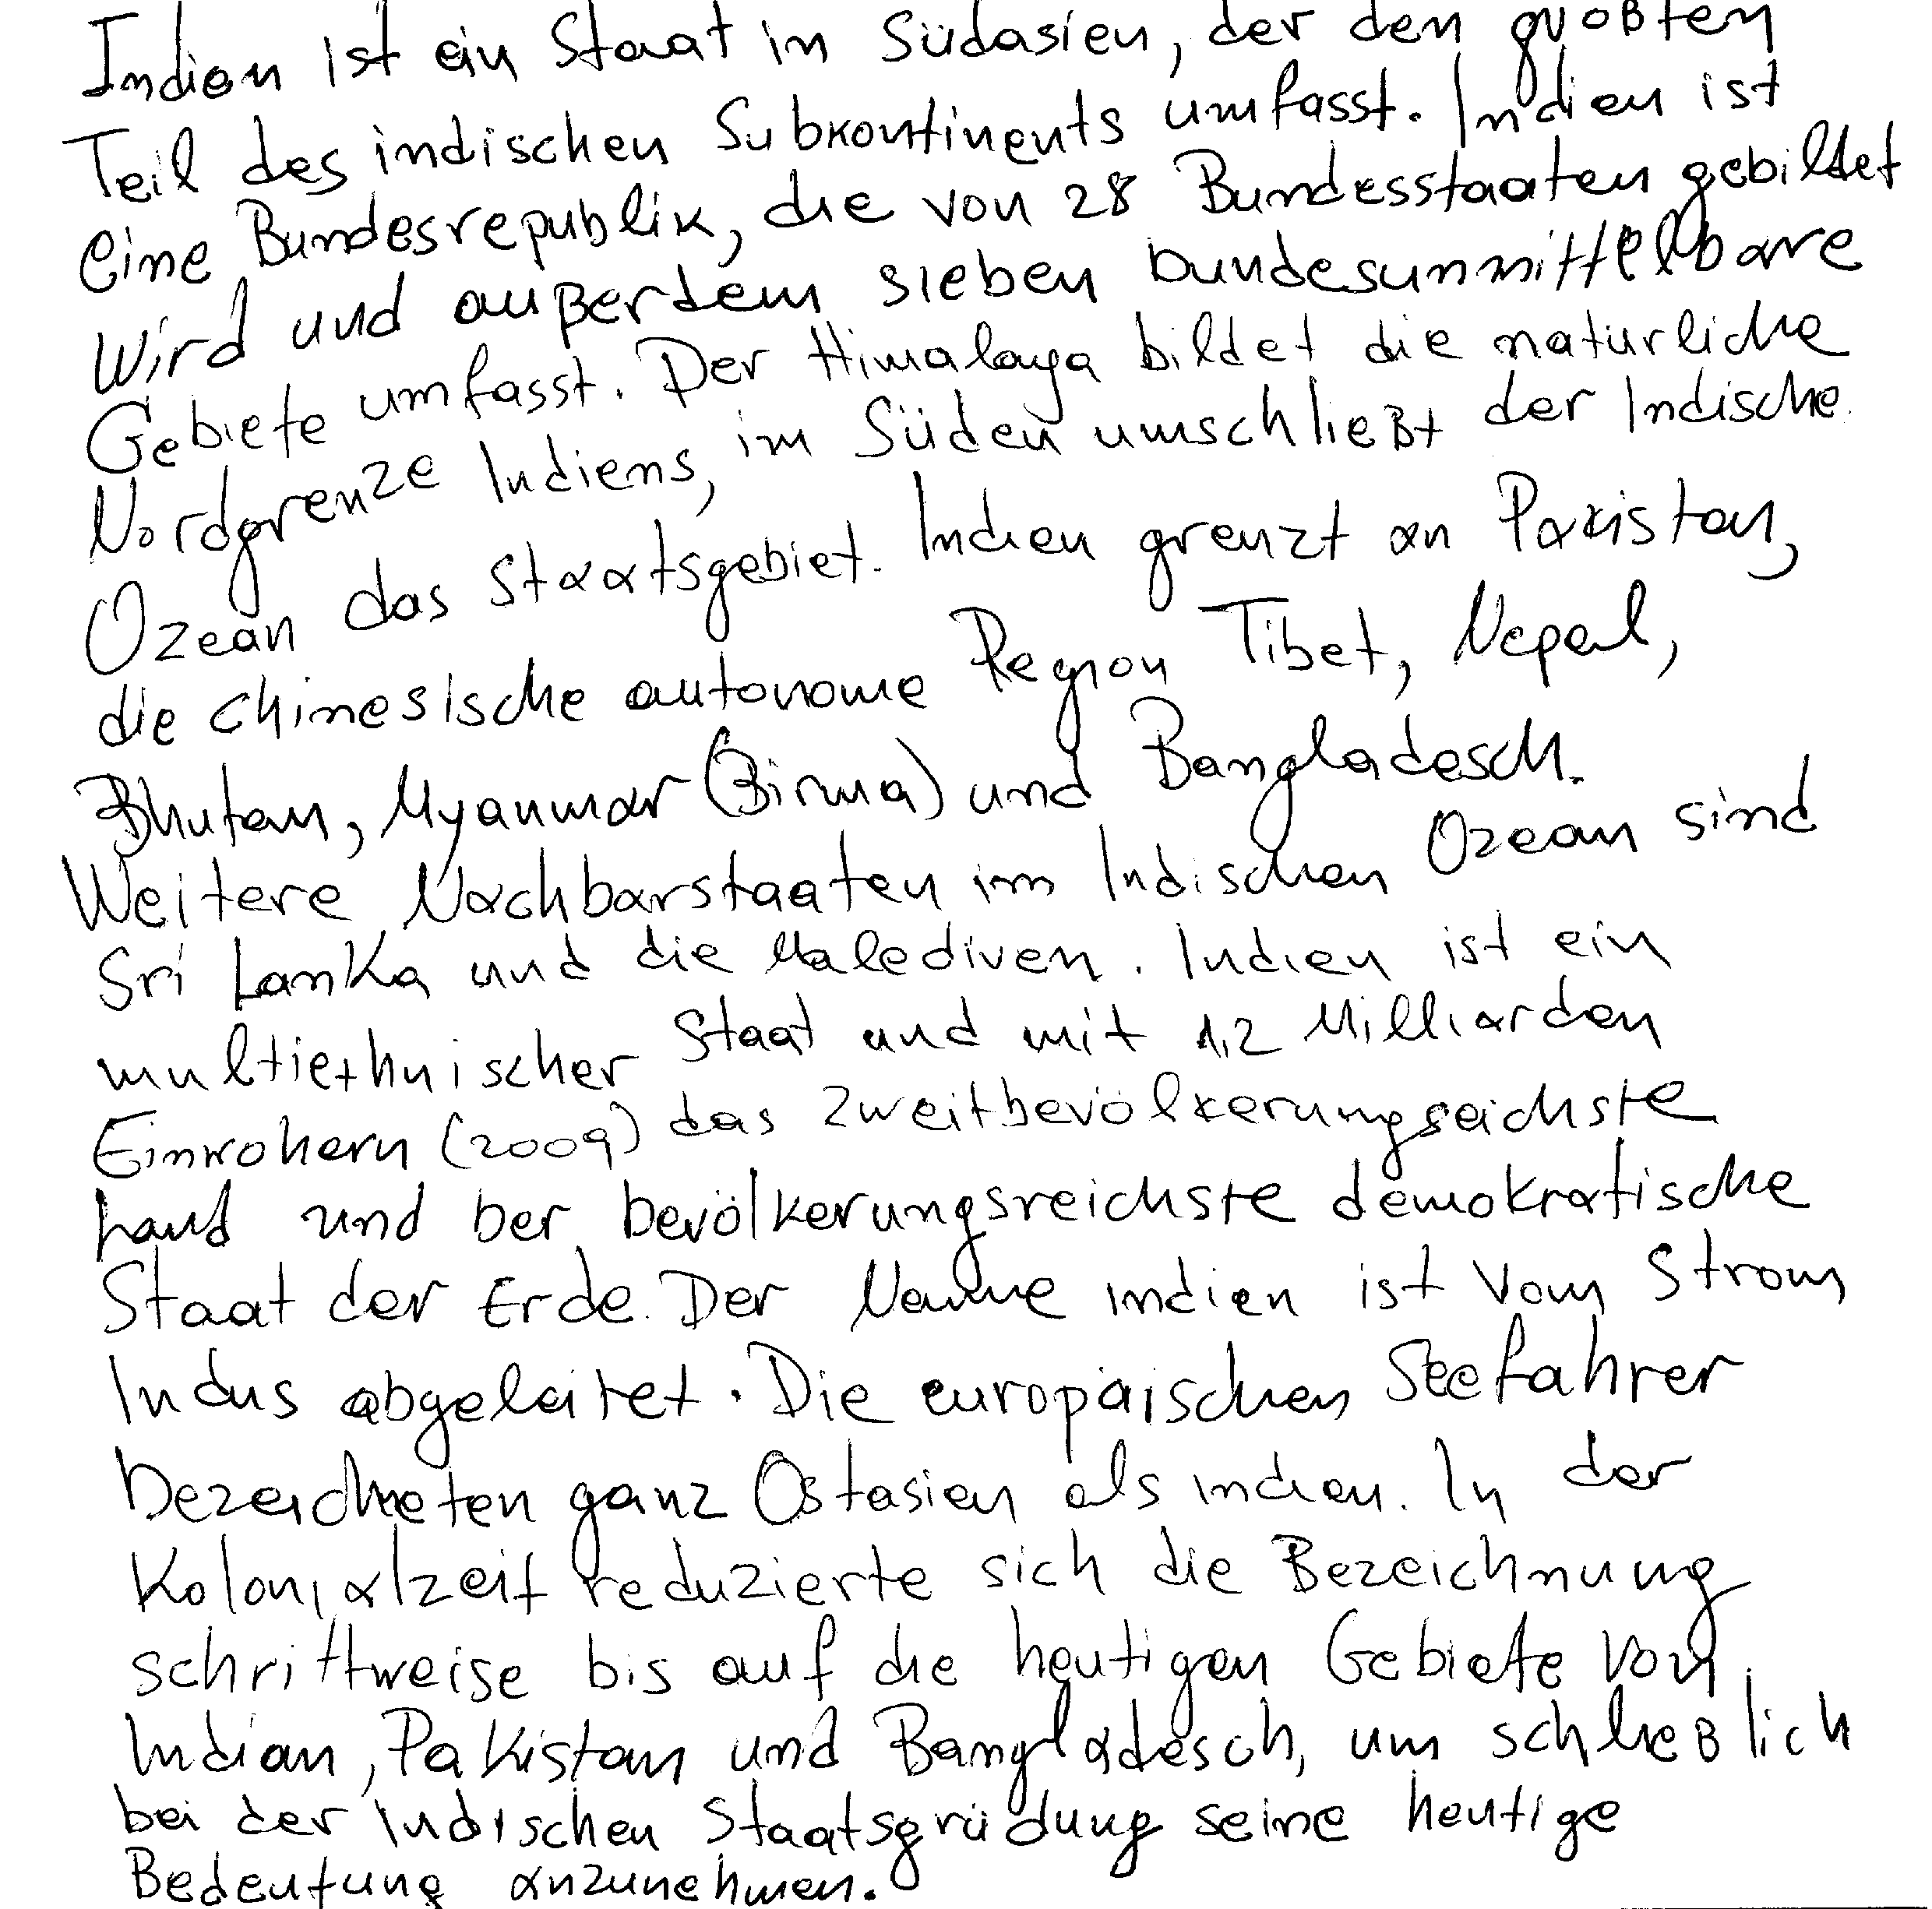 Indien ist ein Staat in Südasien, der den größten
Teil des indischen Subkontinents umfasst. Indien ist
eine Bundesrepublik, die von 28 Bundesstaaten gebildet
wird und außerdem sieben bundesunmittelbare
Gebiete umfasst. Der Himalaya bildet die natürliche
Nordgrenze Indiens, im Süden umschließt der Indische
Ozean das Staatsgebiet. Indien grenzt an Pakistan,
die chinesische autonome Region Tibet, Nepal,
Bhutan, Myanmar (Birma) und Bangladesch.
Weitere Nachbarstaaten im Indischen Ozean sind
Sri Lanka und die Malediven. Indien ist ein
multiethnischer Staat und mit 1,2 Milliarden
Einwohern (2009) das zweitbevölkerungseichste
Land und ber bevölkerungsreichste demokratische
Staat der Erde. Der Name indien ist vom Strom
Indus abgeleitet. Die europäischen Seefahrer
bezeichneten ganz Ostasien als indien. In der
Kolonialzeit reduzierte sich die Bezeichnung
schrittweise bis auf die heutigen Gebiete von
Indian, Pakistan und Bangladesch, um schließlich
bei der Indischen Staatsgrüdung seine heutige
Bedeutung anzunehmen.